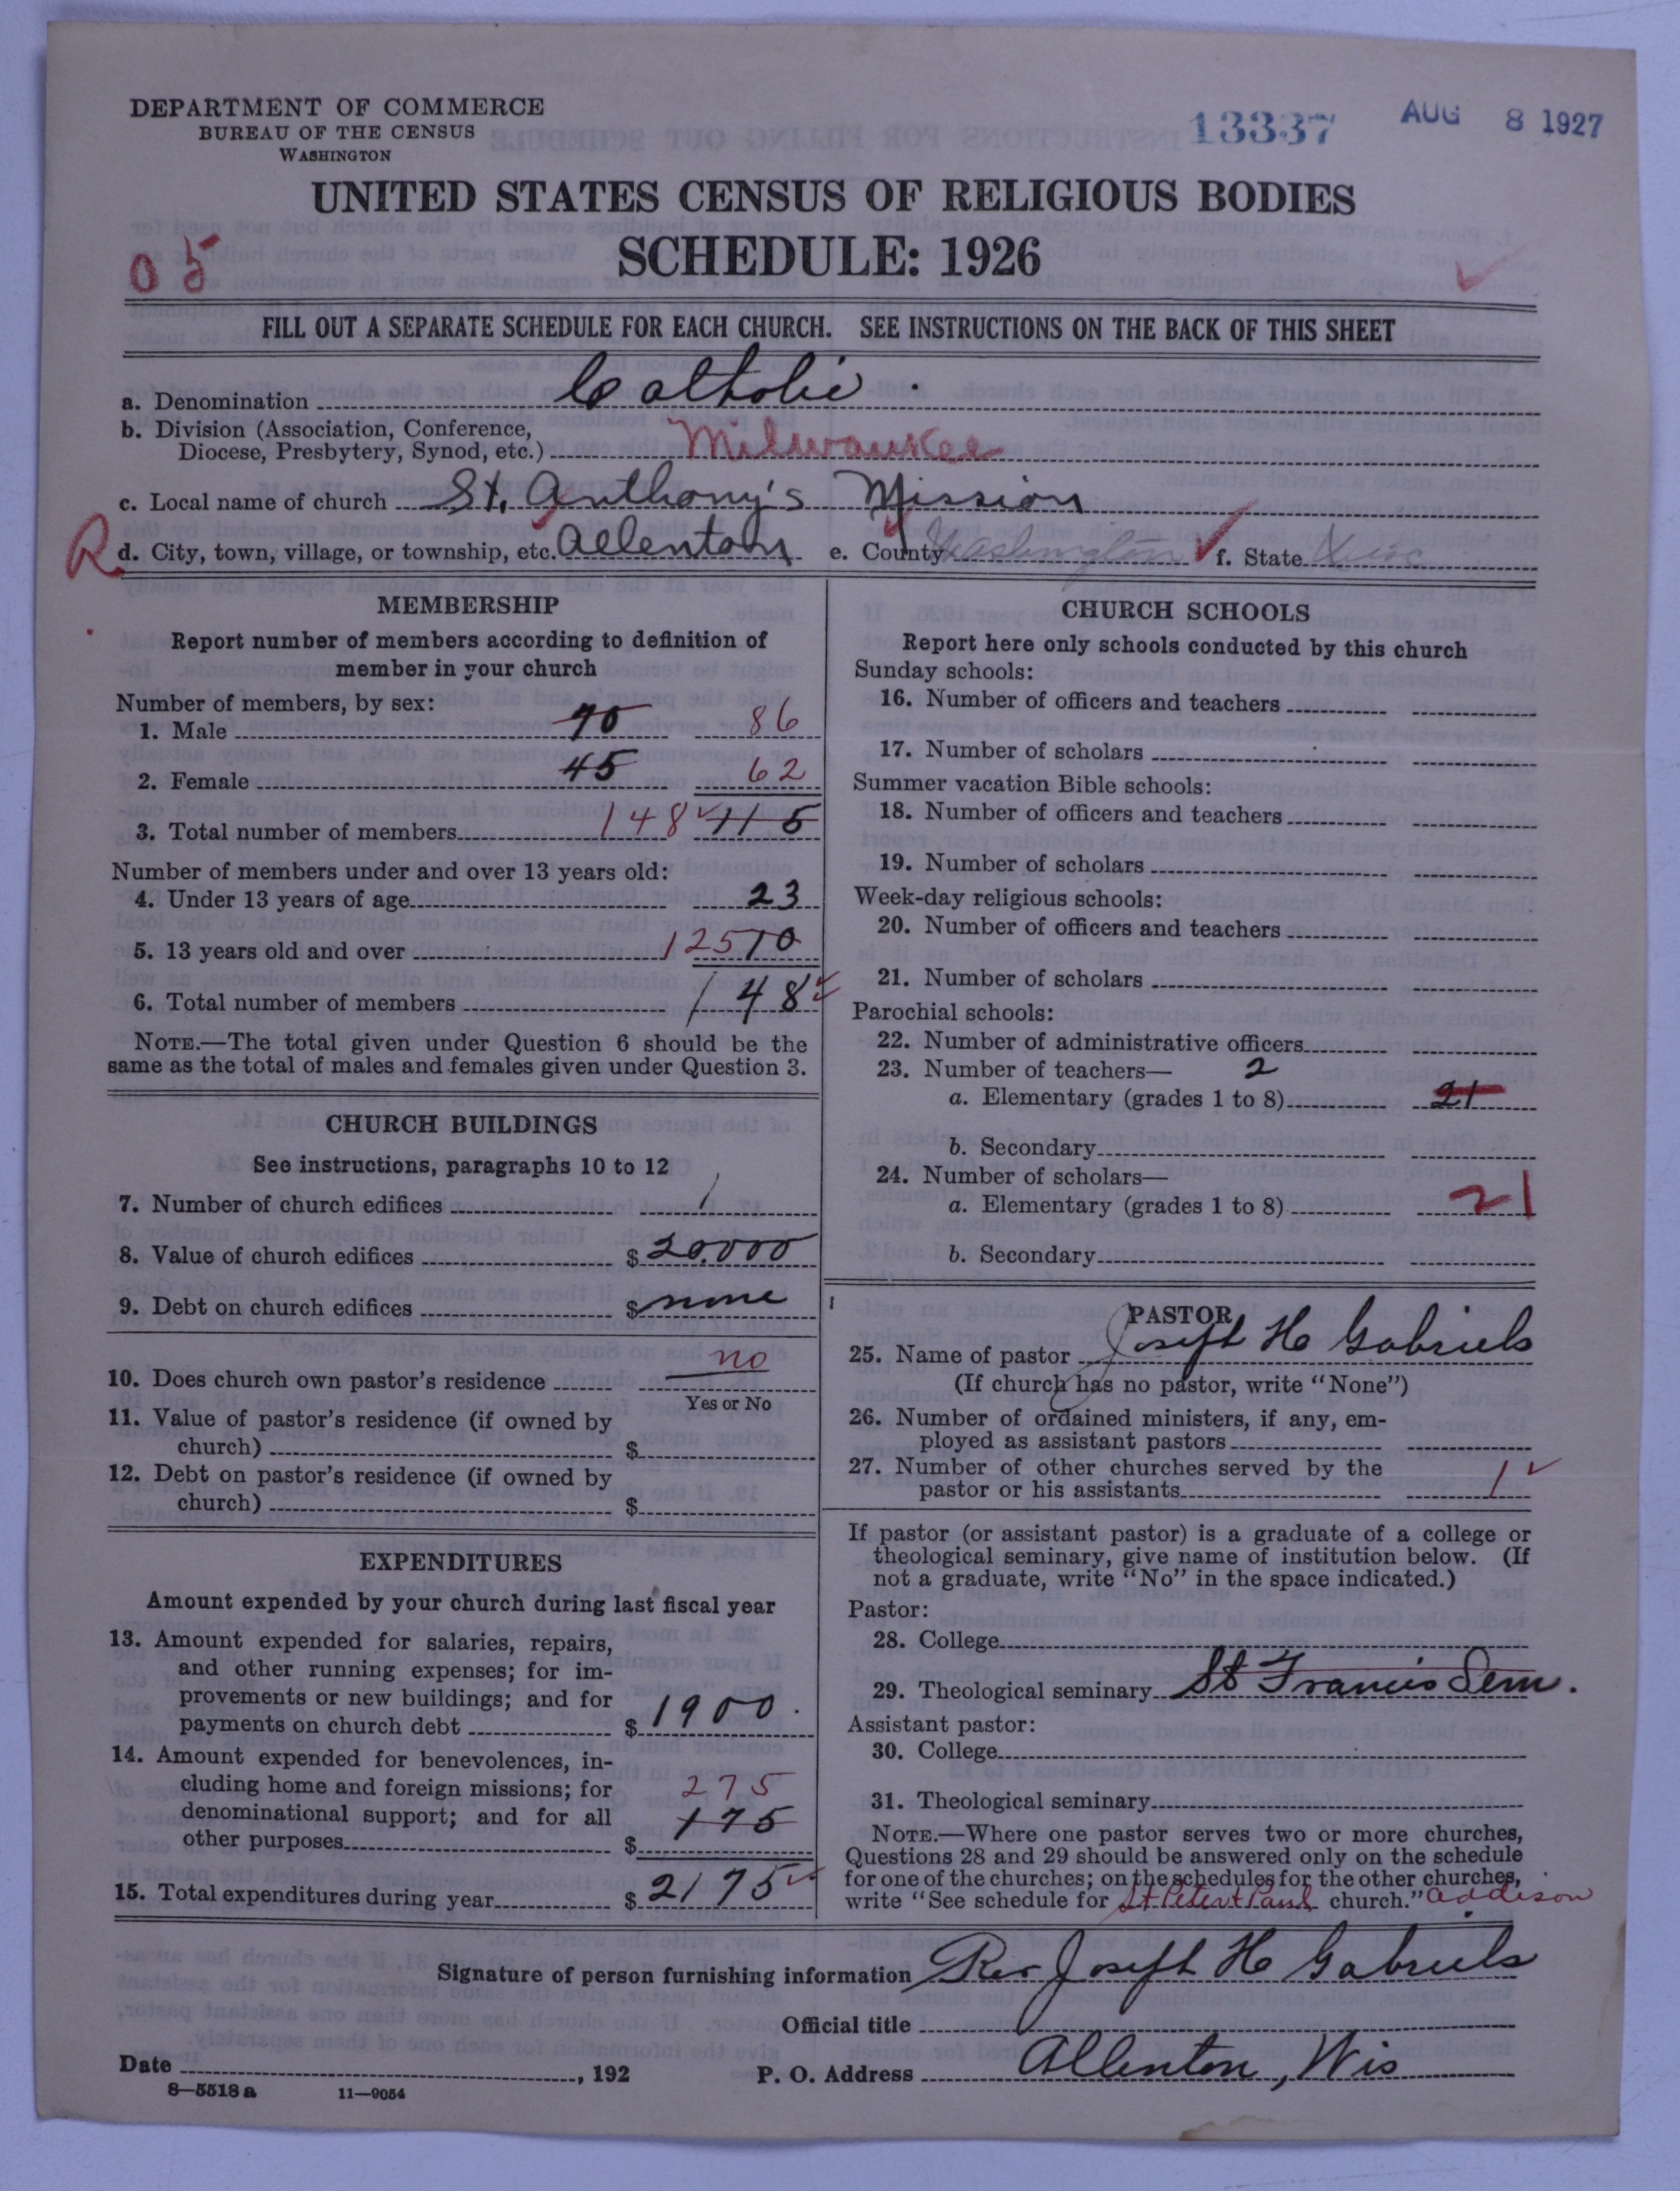 DEPARTMENT OF COMMERCE
BUREAU OF THE CENSUS
WASHINGTON
13337 AUG 8 1927
UNITED STATES CENSUS OF RELIGIOUS BODIES
SCHEDULE: 1926
05
FILL OUT A SEPARATE SCHEDULE FOR EACH CHURCH. SEE INSTRUCTIONS ON THE BACK OF THIS SHEET
a. Denomination Catholic
b. Division (Association, Conference,
Diocese, Presbytery, Synod, etc.) Milwaukee
c. Local name of church St. Anthony's Mission
R d. City, town, village, or township, etc. Allenton e. County Washington f. State Wisc
MEMBERSHIP
Report number of members according to definition of
member in your church
Number of members, by sex:
1. Male 70 86
2. Female 45 62
3. Total number of members 148 115
Number of members under and over 13 years old:
4. Under 13 years of age 23
5. 13 years old and over 125 10
6. Total number of members 148
NOTE.—The total given under Question 6 should be the
same as the total of males and females given under Question 3.
CHURCH BUILDINGS
See instructions, paragraphs 10 to 12
7. Number of church edifices 1
8. Value of church edifices $ 20.000
9. Debt on church edifices $ none
10. Does church own pastor's residence no
Yes or No
11. Value of pastor's residence (if owned by
church) $
12. Debt on pastor's residence (if owned by
church) $
EXPENDITURES
Amount expended by your church during last fiscal year
13. Amount expended for salaries, repairs,
and other running expenses; for im-
provements or new buildings; and for
payments on church debt $ 1900.
14. Amount expended for benevolences, in-
cluding home and foreign missions; for 275
denominational support; and for all 175
other purposes $
15. Total expenditures during year $ 2175
CHURCH SCHOOLS
Report here only schools conducted by this church
Sunday schools:
16. Number of officers and teachers
17. Number of scholars
Summer vacation Bible schools:
18. Number of officers and teachers
19. Number of scholars
Week-day religious schools:
20. Number of officers and teachers
21. Number of scholars
Parochial schools:
22. Number of administrative officers
23. Number of teachers— 2
a. Elementary (grades 1 to 8) 21
b. Secondary
24. Number of scholars—
a. Elementary (grades 1 to 8) 21
b. Secondary
PASTOR
25. Name of pastor Joseph H Gabriels
(If church has no pastor, write "None")
26. Number of ordained ministers, if any, em-
ployed as assistant pastors
27. Number of other churches served by the
pastor or his assistants 1
If pastor (or assistant pastor) is a graduate of a college or
theological seminary, give name of institution below. (If
not a graduate, write "No" in the space indicated.)
Pastor:
28. College
29. Theological seminary St Francis Sem.
Assistant pastor:
30. College
31. Theological seminary
NOTE.—Where one pastor serves two or more churches,
Questions 28 and 29 should be answered only on the schedule
for one of the churches; on the schedules for the other churches,
write "See schedule for St Peter & Paul church." Addison
Signature of person furnishing information Rev Joseph H Gabriels
Official title
Date , 192 P. O. Address Allenton, Wis
8—5518 a 11—9054